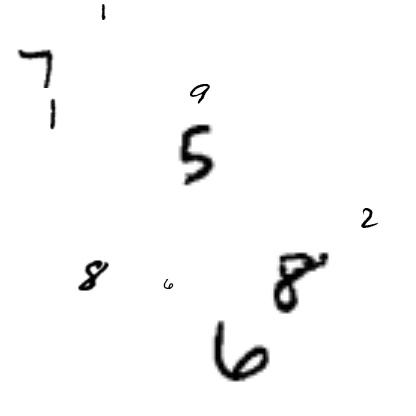 1
7
1
9
5
2
8
6
8
6